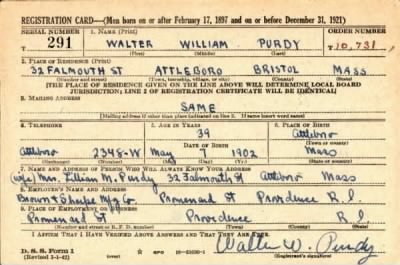 REGISTRATION CARD—(Men born on or after February 17, 1897 and on or before December 31, 1921)
SERIAL NUMBER 1. NAME (Print) ORDER NUMBER
291 WALTER WILLIAM PURDY 10,731
(First) (Middle) (Last)
2. PLACE OF RESIDENCE (Print)
32 FALMOUTH ST ATTLEBORO BRISTOL MASS
(Number and street) (Town, township, village, or city) (County) (State)
[THE PLACE OF RESIDENCE GIVEN ON THE LINE ABOVE WILL DETERMINE LOCAL BOARD
JURISDICTION; LINE 2 OF REGISTRATION CERTIFICATE WILL BE IDENTICAL]
3. MAILING ADDRESS
SAME
[Mailing address if other than place indicated on line 2. If same insert word same]
4. TELEPHONE 5. AGE IN YEARS 6. PLACE OF BIRTH
39 Attleboro
DATE OF BIRTH (Town or county)
Attleboro 2348-W May 7 1902 Mass
(Exchange) (Number) (Mo.) (Day) (Yr.) (State or country)
7. NAME AND ADDRESS OF PERSON WHO WILL ALWAYS KNOW YOUR ADDRESS
(wife) Mrs. Lillian M. Purdy 32 Falmouth St Attleboro Mass
8. EMPLOYER'S NAME AND ADDRESS
Brown & Sharpe Mfg Co. Promenard St Providence R.I.
9. PLACE OF EMPLOYMENT OR BUSINESS
Promenard St Providence R.I.
(Number and street or R. F. D. number) (Town) (County) (State)
I AFFIRM THAT I HAVE VERIFIED ABOVE ANSWERS AND THAT THEY ARE TRUE.
D. S. S. Form 1
(Revised 1-1-42) (over) Walter W. Purdy
(Registrant's signature)